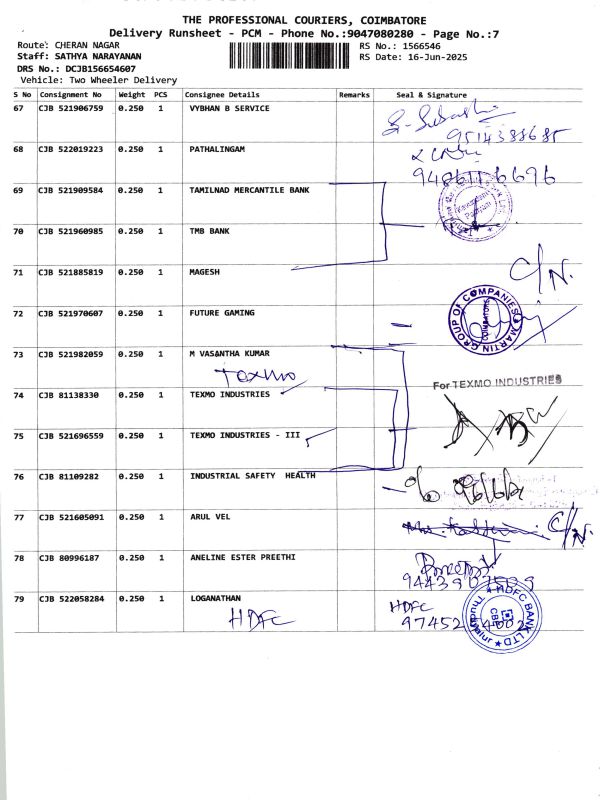 THE PROFESSIONAL COURIERS, COIMBATORE
Delivery Runsheet - PCM - Phone No.:9047080280 - Page No.:7
Route: CHERAN NAGAR RS No.: 1566546
Staff: SATHYA NARAYANAN RS Date: 16-Jun-2025
DRS No.: DCJB156654607
Vehicle: Two Wheeler Delivery
S No Consignment No Weight PCS Consignee Details Remarks Seal & Signature
67 CJB 521906759 0.250 1 VYBHAN B SERVICE
9514388685
68 CJB 522019223 0.250 1 PATHALINGAM
9486116696
69 CJB 521909584 0.250 1 TAMILNAD MERCANTILE BANK
70 CJB 521960985 0.250 1 TMB BANK
71 CJB 521885819 0.250 1 MAGESH C/N.
72 CJB 521970607 0.250 1 FUTURE GAMING
MARTIN GROUP OF COMPANIES COIMBATORE
73 CJB 521982059 0.250 1 M VASANTHA KUMAR
Texmo
For TEXMO INDUSTRIES
74 CJB 81138330 0.250 1 TEXMO INDUSTRIES
75 CJB 521696559 0.250 1 TEXMO INDUSTRIES - III
76 CJB 81109282 0.250 1 INDUSTRIAL SAFETY HEALTH
77 CJB 521605091 0.250 1 ARUL VEL C/N.
78 CJB 80996187 0.250 1 ANELINE ESTER PREETHI
79 CJB 522058284 0.250 1 LOGANATHAN HDFC
HDFC
HDFC BANK LTD